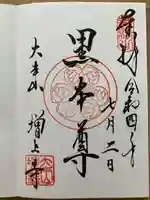 奉拝
令和四年
七月二日
黒本尊
大本山
増上寺